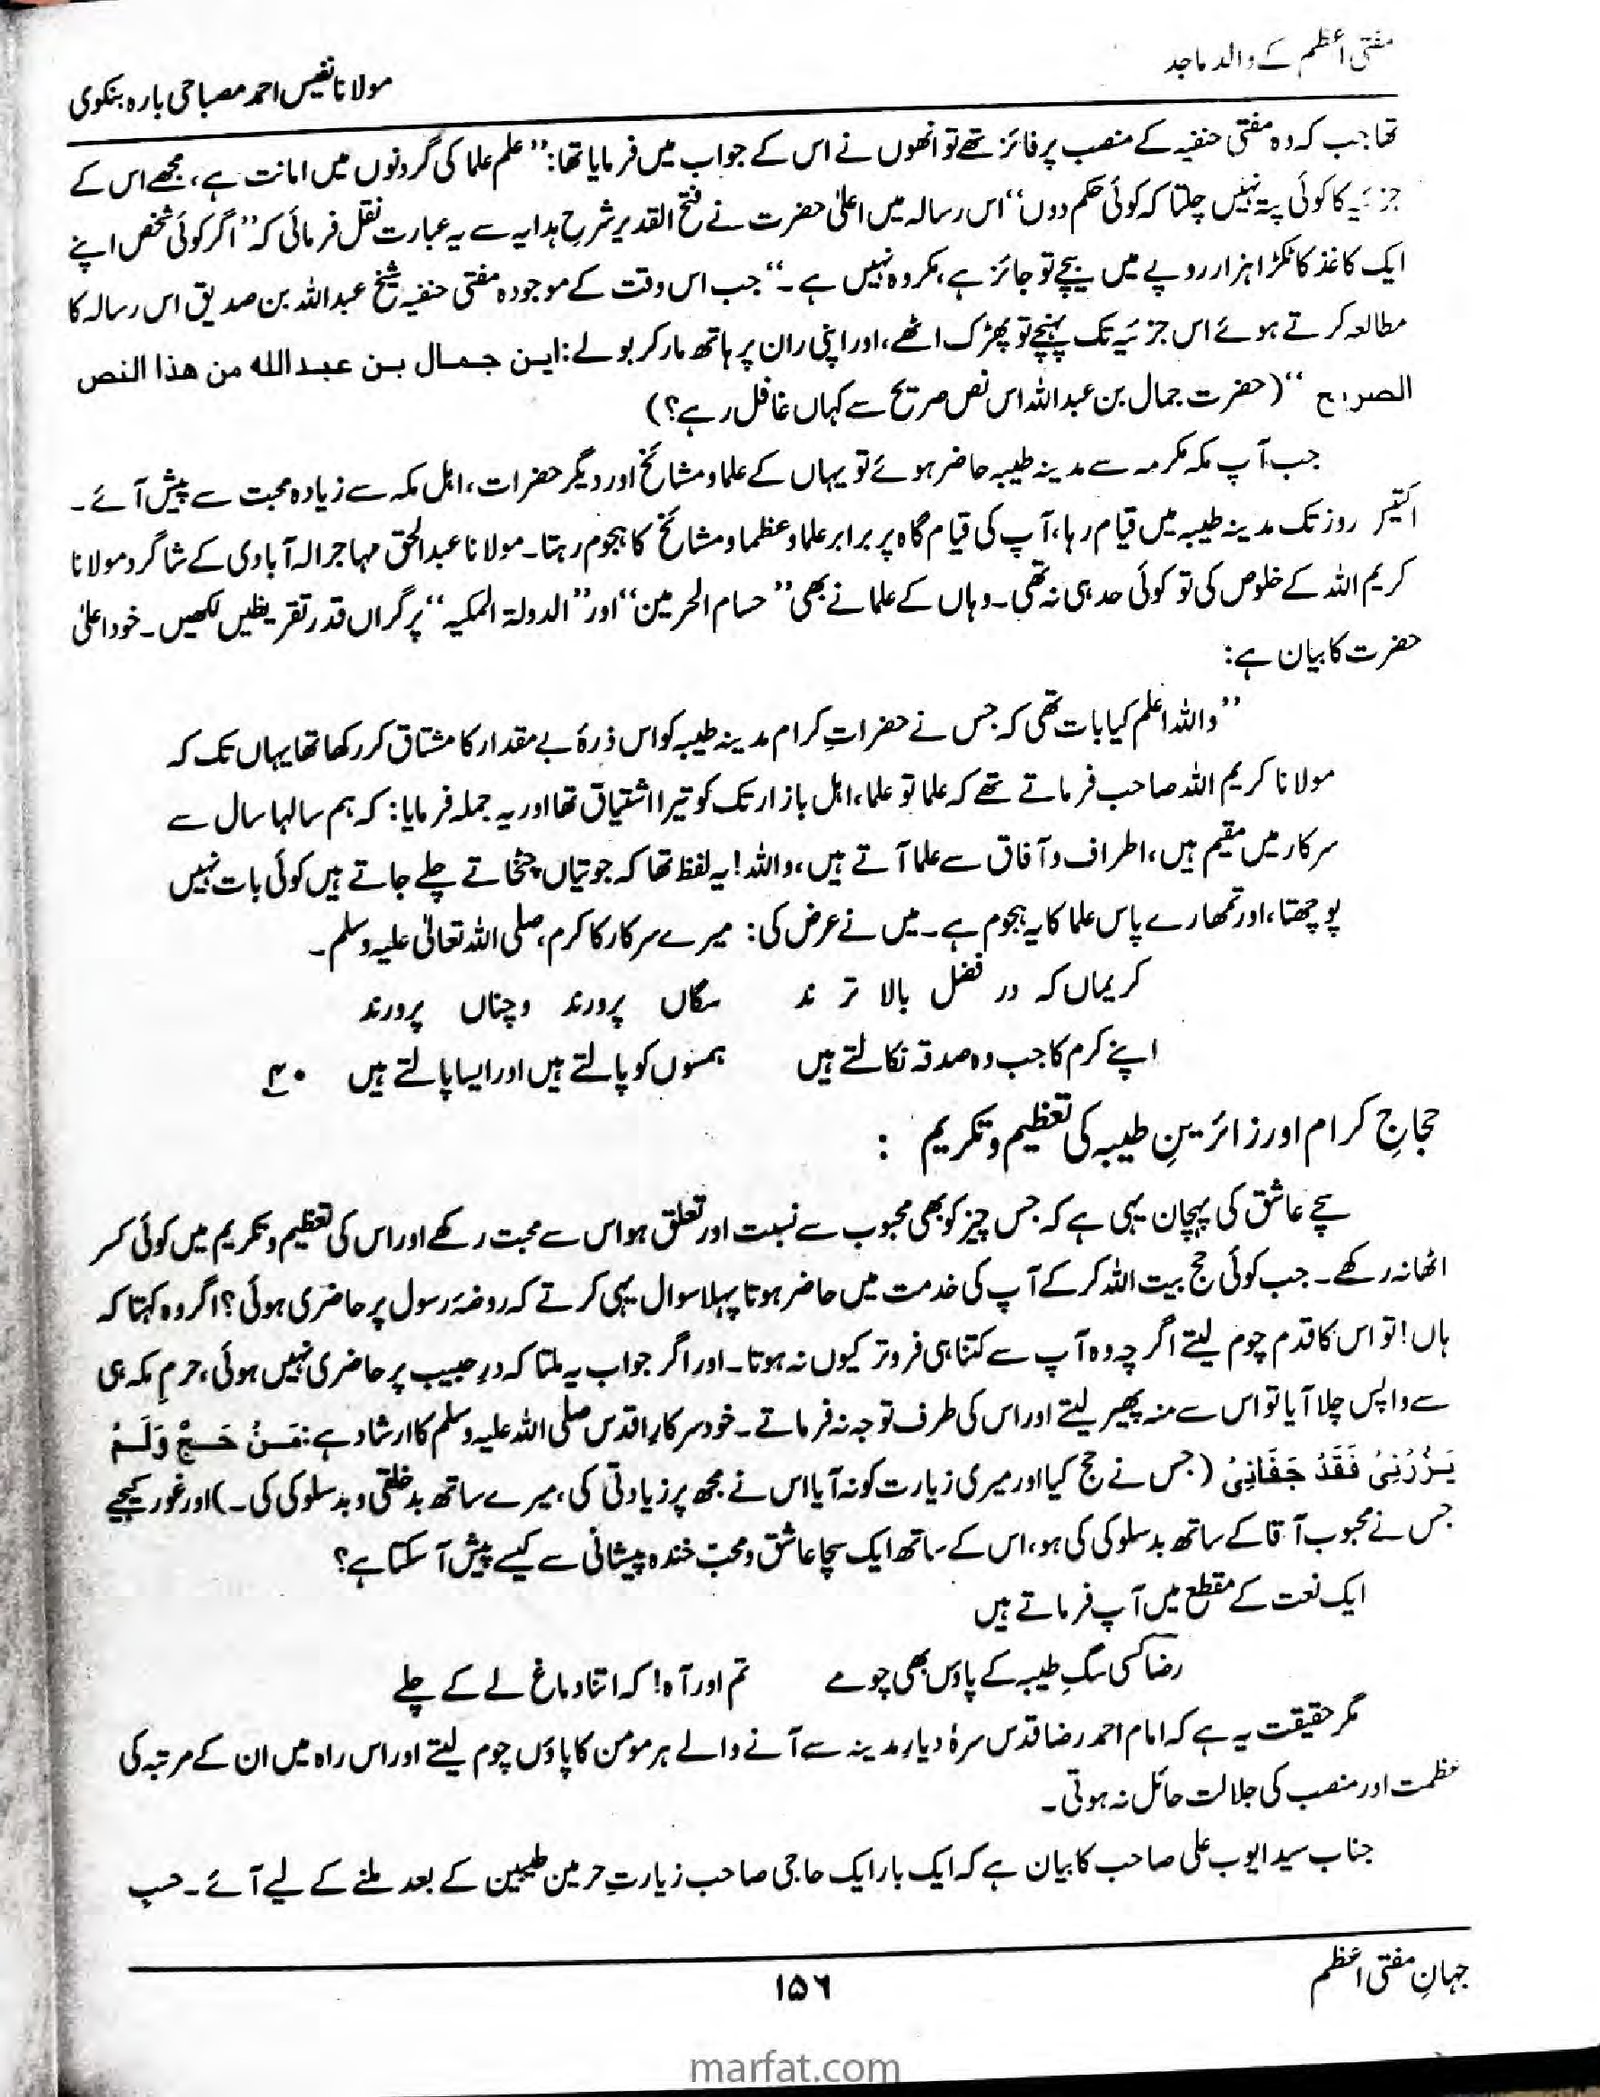 مفتی اعظم کے والد ماجد
مولانا نفیس احمد مصباحی بارہ بنکوی
تھا جب کہ وہ مفتی حنفیہ کے منصب پر فائز تھے تو انھوں نے اس کے جواب میں فرمایا تھا: ”علم علما کی گردنوں میں امانت ہے، مجھے اس کے
جزئیہ کا کوئی پتہ نہیں چلتا کہ کوئی حکم دوں“ اس رسالہ میں اعلیٰ حضرت نے فتح القدیر شرح ہدایہ سے یہ عبارت نقل فرمائی کہ ”اگر کوئی شخص اپنے
ایک کاغذ کا ٹکڑا ہزار روپے میں بیچے تو جائز ہے، مکروہ نہیں ہے۔“ جب اس وقت کے موجودہ مفتی حنفیہ شیخ عبداللہ بن صدیق اس رسالہ کا
مطالعہ کرتے ہوئے اس جزئیہ تک پہنچے تو پھڑک اٹھے، اور اپنی ران پر ہاتھ مار کر بولے: این جمال بن عبداللہ من ھذا النص
الصریح “ (حضرت جمال بن عبداللہ اس نص صریح سے کہاں غافل رہے؟)
جب آپ مکہ مکرمہ سے مدینہ طیبہ حاضر ہوئے تو یہاں کے علما و مشائخ اور دیگر حضرات، اہل مکہ سے زیادہ محبت سے پیش آئے۔
اکتیس روز تک مدینہ طیبہ میں قیام رہا، آپ کی قیام گاہ پر برابر علما و عظما و مشائخ کا ہجوم رہتا۔ مولانا عبدالحق مہاجر الہ آبادی کے شاگرد مولانا
کریم اللہ کے خلوص کی تو کوئی حد ہی نہ تھی۔ وہاں کے علما نے بھی ”حسام الحرمین“ اور ”الدولۃ المکیہ“ پر گراں قدر تقریظیں لکھیں۔ خود اعلیٰ
حضرت کا بیان ہے:
”واللہ اعلم کیا بات تھی کہ جس نے حضراتِ کرام مدینہ طیبہ کو اس ذرۂ بے مقدار کا مشتاق کر رکھا تھا یہاں تک کہ
مولانا کریم اللہ صاحب فرماتے تھے کہ علما تو علما، اہل بازار تک کو تیرا اشتیاق تھا اور یہ جملہ فرمایا: کہ ہم سالہا سال سے
سرکار میں مقیم ہیں، اطراف و آفاق سے علما آتے ہیں، واللہ! یہ لفظ تھا کہ جوتیاں چٹخاتے چلے جاتے ہیں کوئی بات نہیں
پوچھتا، اور تمھارے پاس علما کا یہ ہجوم ہے۔ میں نے عرض کی: میرے سرکار کا کرم، صلی اللہ تعالیٰ علیہ وسلم۔
کریماں کہ در فضل بالا تر ند سگاں پرورند و چناں پرورند
اپنے کرم کا جب وہ صدقہ نکالتے ہیں ہمسوں کو پالتے ہیں اور ایسا پالتے ہیں ۴۰؎
حجاجِ کرام اور زائرینِ طیبہ کی تعظیم و تکریم :
سچے عاشق کی پہچان یہی ہے کہ جس چیز کو بھی محبوب سے نسبت اور تعلق ہو اس سے محبت رکھے اور اس کی تعظیم و تکریم میں کوئی کسر
اٹھا نہ رکھے۔ جب کوئی حج بیت اللہ کر کے آپ کی خدمت میں حاضر ہوتا پہلا سوال یہی کرتے کہ روضۂ رسول پر حاضری ہوئی؟ اگر وہ کہتا کہ
ہاں! تو اس کا قدم چوم لیتے اگر چہ وہ آپ سے کتنا ہی فروتر کیوں نہ ہوتا۔ اور اگر جواب یہ ملتا کہ درِ حبیب پر حاضری نہیں ہوئی، حرمِ مکہ ہی
سے واپس چلا آیا تو اس سے منہ پھیر لیتے اور اس کی طرف توجہ نہ فرماتے۔ خود سرکارِ اقدس صلی اللہ علیہ وسلم کا ارشاد ہے: مَنْ حَجَّ وَلَمْ
یَزُرْنِیْ فَقَدْ جَفَانِیْ (جس نے حج کیا اور میری زیارت کو نہ آیا اس نے مجھ پر زیادتی کی، میرے ساتھ بدخلقی و بدسلوکی کی۔) اور غور کیجیے
جس نے محبوب آقا کے ساتھ بدسلوکی کی ہو، اس کے ساتھ ایک سچا عاشق و محب خندہ پیشانی سے کیسے پیش آسکتا ہے؟
ایک نعت کے مقطع میں آپ فرماتے ہیں
رضا کسی سگِ طیبہ کے پاؤں بھی چومے تم اور آہ! کہ اتنا دماغ لے کے چلے
مگر حقیقت یہ ہے کہ امام احمد رضا قدس سرہٗ دیارِ مدینہ سے آنے والے ہر مومن کا پاؤں چوم لیتے اور اس راہ میں ان کے مرتبہ کی
عظمت اور منصب کی جلالت حائل نہ ہوتی۔
جناب سید ایوب علی صاحب کا بیان ہے کہ ایک بار ایک حاجی صاحب زیارتِ حرمین طیبین کے بعد ملنے کے لیے آئے۔ حسب
جہانِ مفتی اعظم
۱۵۶
marfat.com